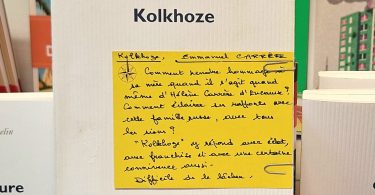 Kolkhoze
Kolkhoze, Emmanuel CARRÈRE
Comment rendre hommage à
sa mère quand il s'agit quand
même d'Hélène Carrère d'Encausse ?
Comment éclairer ses rapports avec
cette famille russe, avec tous
les siens ?
"Kolkhoze" y répond avec éclat,
avec franchise et avec une certaine
connivence aussi.
Difficile de le lâcher.
elin
ure
C